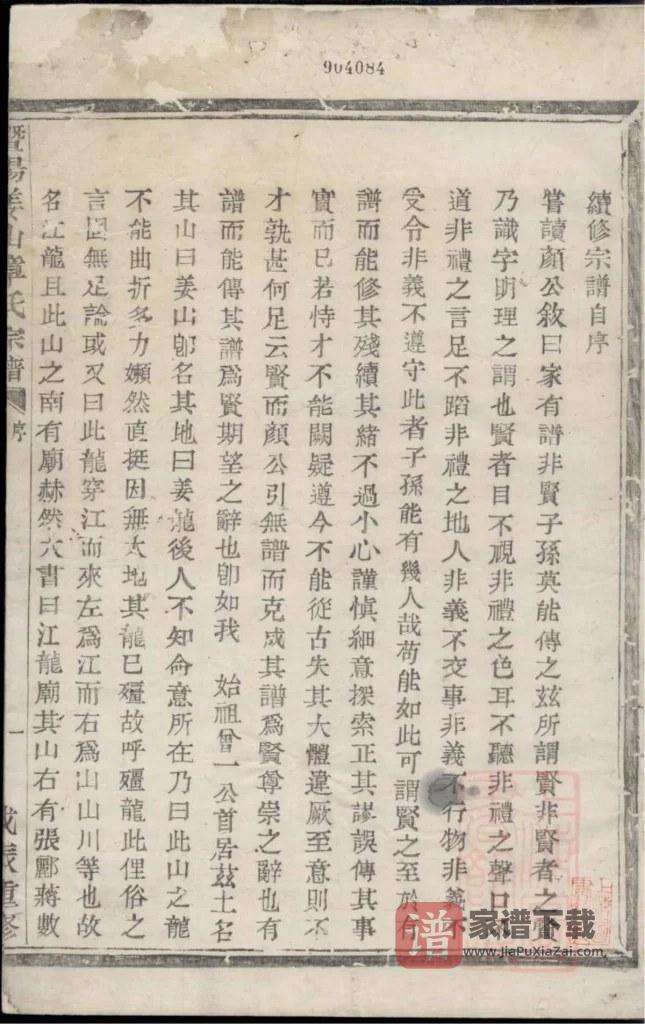 904084
續修宗譜自序
嘗讀顏公敘曰家有譜非賢子孫莫能傳之茲所謂賢非賢者之賢
乃識字明理之謂也賢者目不視非禮之色耳不聽非禮之聲口不
道非禮之言足不蹈非禮之地人非義不交事非義不行物非義不
受令非義不遵守此者子孫能有幾人哉苟能如此可謂賢之至於有
譜而能修其殘續其緒不過小心謹慎細意探索正其謬誤傳其事
實而已若恃才不能闕疑遵今不能從古失其大體違厥至意則不
才孰甚何足云賢而顏公引無譜而克成其譜爲賢尊崇之辭也有
譜而能傳其譜爲賢期望之辭也卽如我 始祖曾一公首居茲土名
其山曰姜山卽名其地曰姜龍後人不知命意所在乃曰此山之龍
不能曲折多力嬾然直挺因無大地其龍已殭故呼殭龍此俚俗之
言固無足論或又曰此龍穿江而來左爲江而右爲山山川等也故
名江龍且此山之南有廟赫然大書曰江龍廟其山右有張酈蔣數
暨陽姜山章氏宗譜 序 一 重修
家谱下载
www.JiaPuXiaZai.com
譜